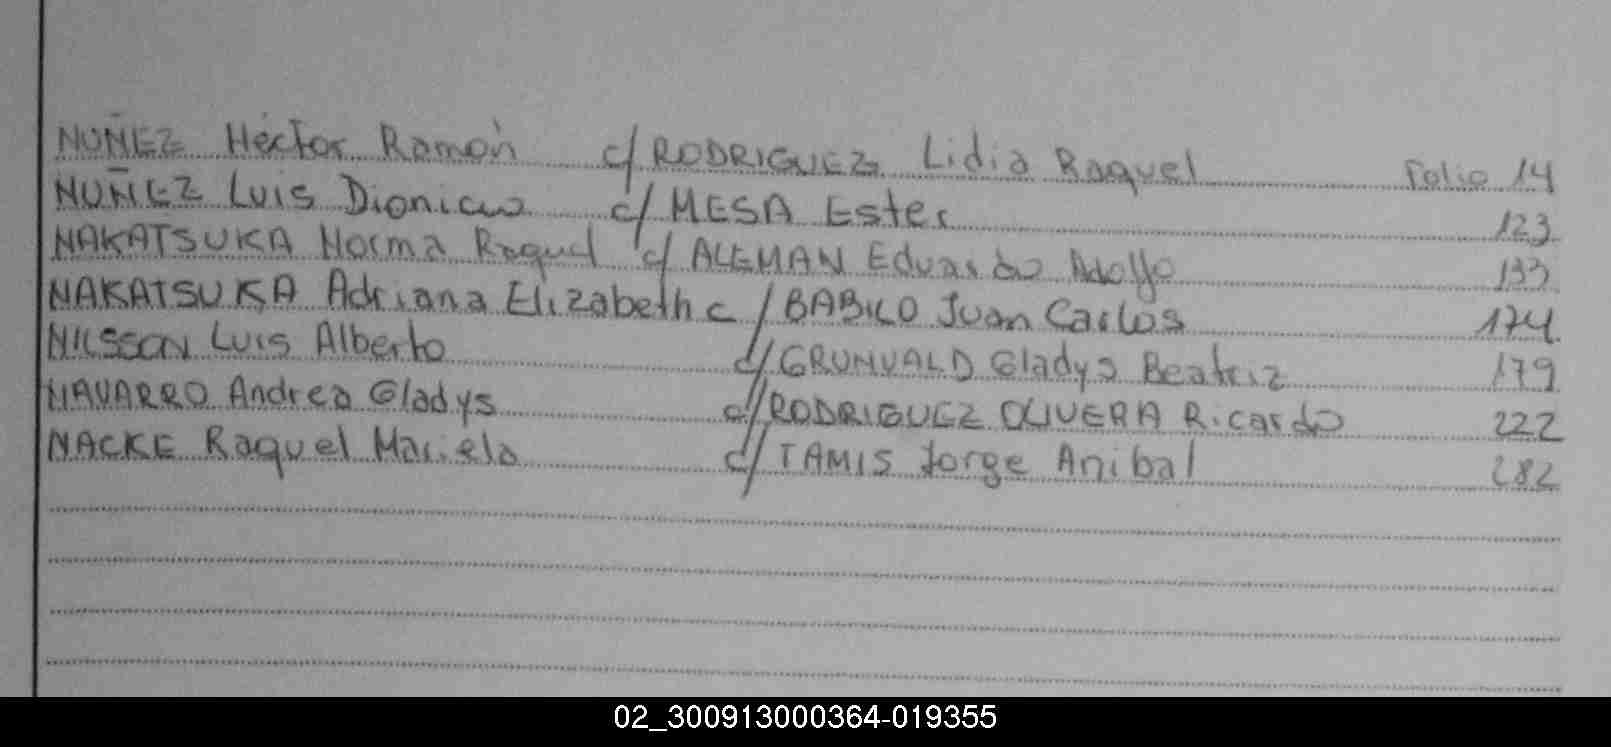 NUÑEZ Héctor Ramón c/ RODRIGUEZ Lidia Raquel Folio 14
NUÑEZ Luis Dionicio c/ MESA Ester 123
NAKATSUKA Norma Raquel c/ ALEMAN Eduardo Adolfo 133
NAKATSUKA Adriana Elizabeth c/ BABILO Juan Carlos 174
NILSSON Luis Alberto c/ GRUNVALD Gladys Beatriz 179
NAVARRO Andrea Gladys c/ RODRIGUEZ OLIVERA Ricardo 222
NACKE Raquel Mariela c/ TAMIS Jorge Anibal 282
02_300913000364-019355